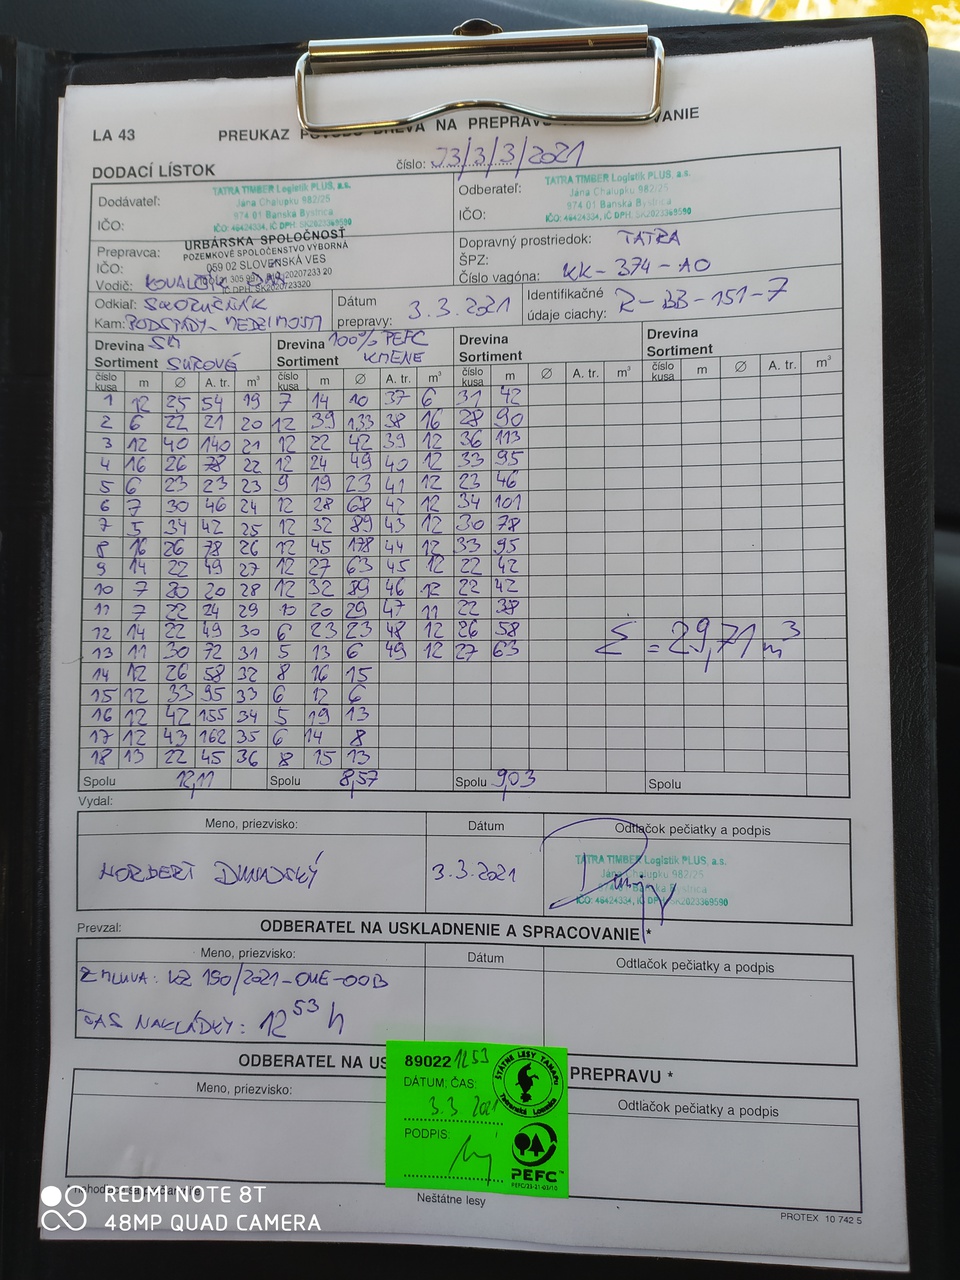 LA 43 PREUKAZ DREVA NA PREPRAVU
DODACÍ LÍSTOK číslo: 73/3/3/2021
Dodávateľ:
TATRA TIMBER Logistik PLUS, a.s.
Jána Chalupku 982/25
974 01 Banská Bystrica
IČO: 46424334, IČ DPH. SK2023369590
IČO:
Odberateľ:
TATRA TIMBER Logistik PLUS, a.s.
Jána Chalupku 982/25
974 01 Banská Bystrica
IČO: 46424334, IČ DPH. SK2023369590
IČO:
Prepravca:
URBÁRSKA SPOLOČNOSŤ
POZEMKOVÉ SPOLOČENSTVO VÝBORNÁ
059 02 SLOVENSKÁ VES
IČO:
Vodič:
Dopravný prostriedok: TATRA
ŠPZ:
Číslo vagóna: KK-374-AO
Odkiaľ:
Kam: PODSPÁDY-MEDZIMOSTI
Dátum
prepravy: 3.3.2021
Identifikačné
údaje ciachy: R-BB-151-7
Drevina SM 100% PEFC Drevina Drevina
Sortiment SUROVÉ Sortiment KMENE Sortiment Sortiment
číslo kusa m ∅ A. tr. m³ číslo kusa m ∅ A. tr. m³ číslo kusa m ∅ A. tr. m³ číslo kusa m ∅ A. tr. m³
1 12 25 54 19 7 14 10 37 6 31 42
2 6 22 21 20 12 39 133 38 16 28 90
3 12 40 140 21 12 22 42 39 12 36 113
4 16 26 78 22 12 24 49 40 12 33 95
5 6 23 23 23 9 19 23 41 12 23 46
6 7 30 46 24 12 28 68 42 12 34 101
7 5 34 42 25 12 32 89 43 12 30 78
8 16 26 78 26 12 45 178 44 12 33 95
9 14 22 49 27 12 27 63 45 12 22 42
10 7 20 20 28 12 32 89 46 12 22 42
11 7 22 24 29 10 20 29 47 11 22 38
12 14 22 49 30 6 23 23 48 12 26 58
13 11 30 72 31 5 13 6 49 12 27 63
Σ = 29,71 m³
14 12 26 58 32 8 16 15
15 12 33 95 33 6 12 6
16 12 42 155 34 5 19 13
17 12 43 162 35 6 14 8
18 13 22 45 36 8 15 13
Spolu 12,11 Spolu 8,57 Spolu 9,03 Spolu
Vydal:
Meno, priezvisko: Dátum Odtlačok pečiatky a podpis
NORBERT 3.3.2021
TATRA TIMBER Logistik PLUS, a.s.
Jána Chalupku 982/25
974 01 Banská Bystrica
IČO: 46424334, IČ DPH. SK2023369590
Prevzal: ODBERATEĽ NA USKLADNENIE A SPRACOVANIE *
Meno, priezvisko: Dátum Odtlačok pečiatky a podpis
ZMLUVA: KZ 190/2021-OME-OOB
ČAS NAKLÁDKY: 12 53 h
ODBERATEĽ NA PREPRAVU *
Meno, priezvisko: Odtlačok pečiatky a podpis
89022 1253
DÁTUM: ČAS:
3.3 2021
PODPIS:
ŠTÁTNE LESY TANAPu
Tatranská Lomnica
PEFC™
Neštátne lesy
PROTEX 10 742 5
REDMI NOTE 8T
48MP QUAD CAMERA